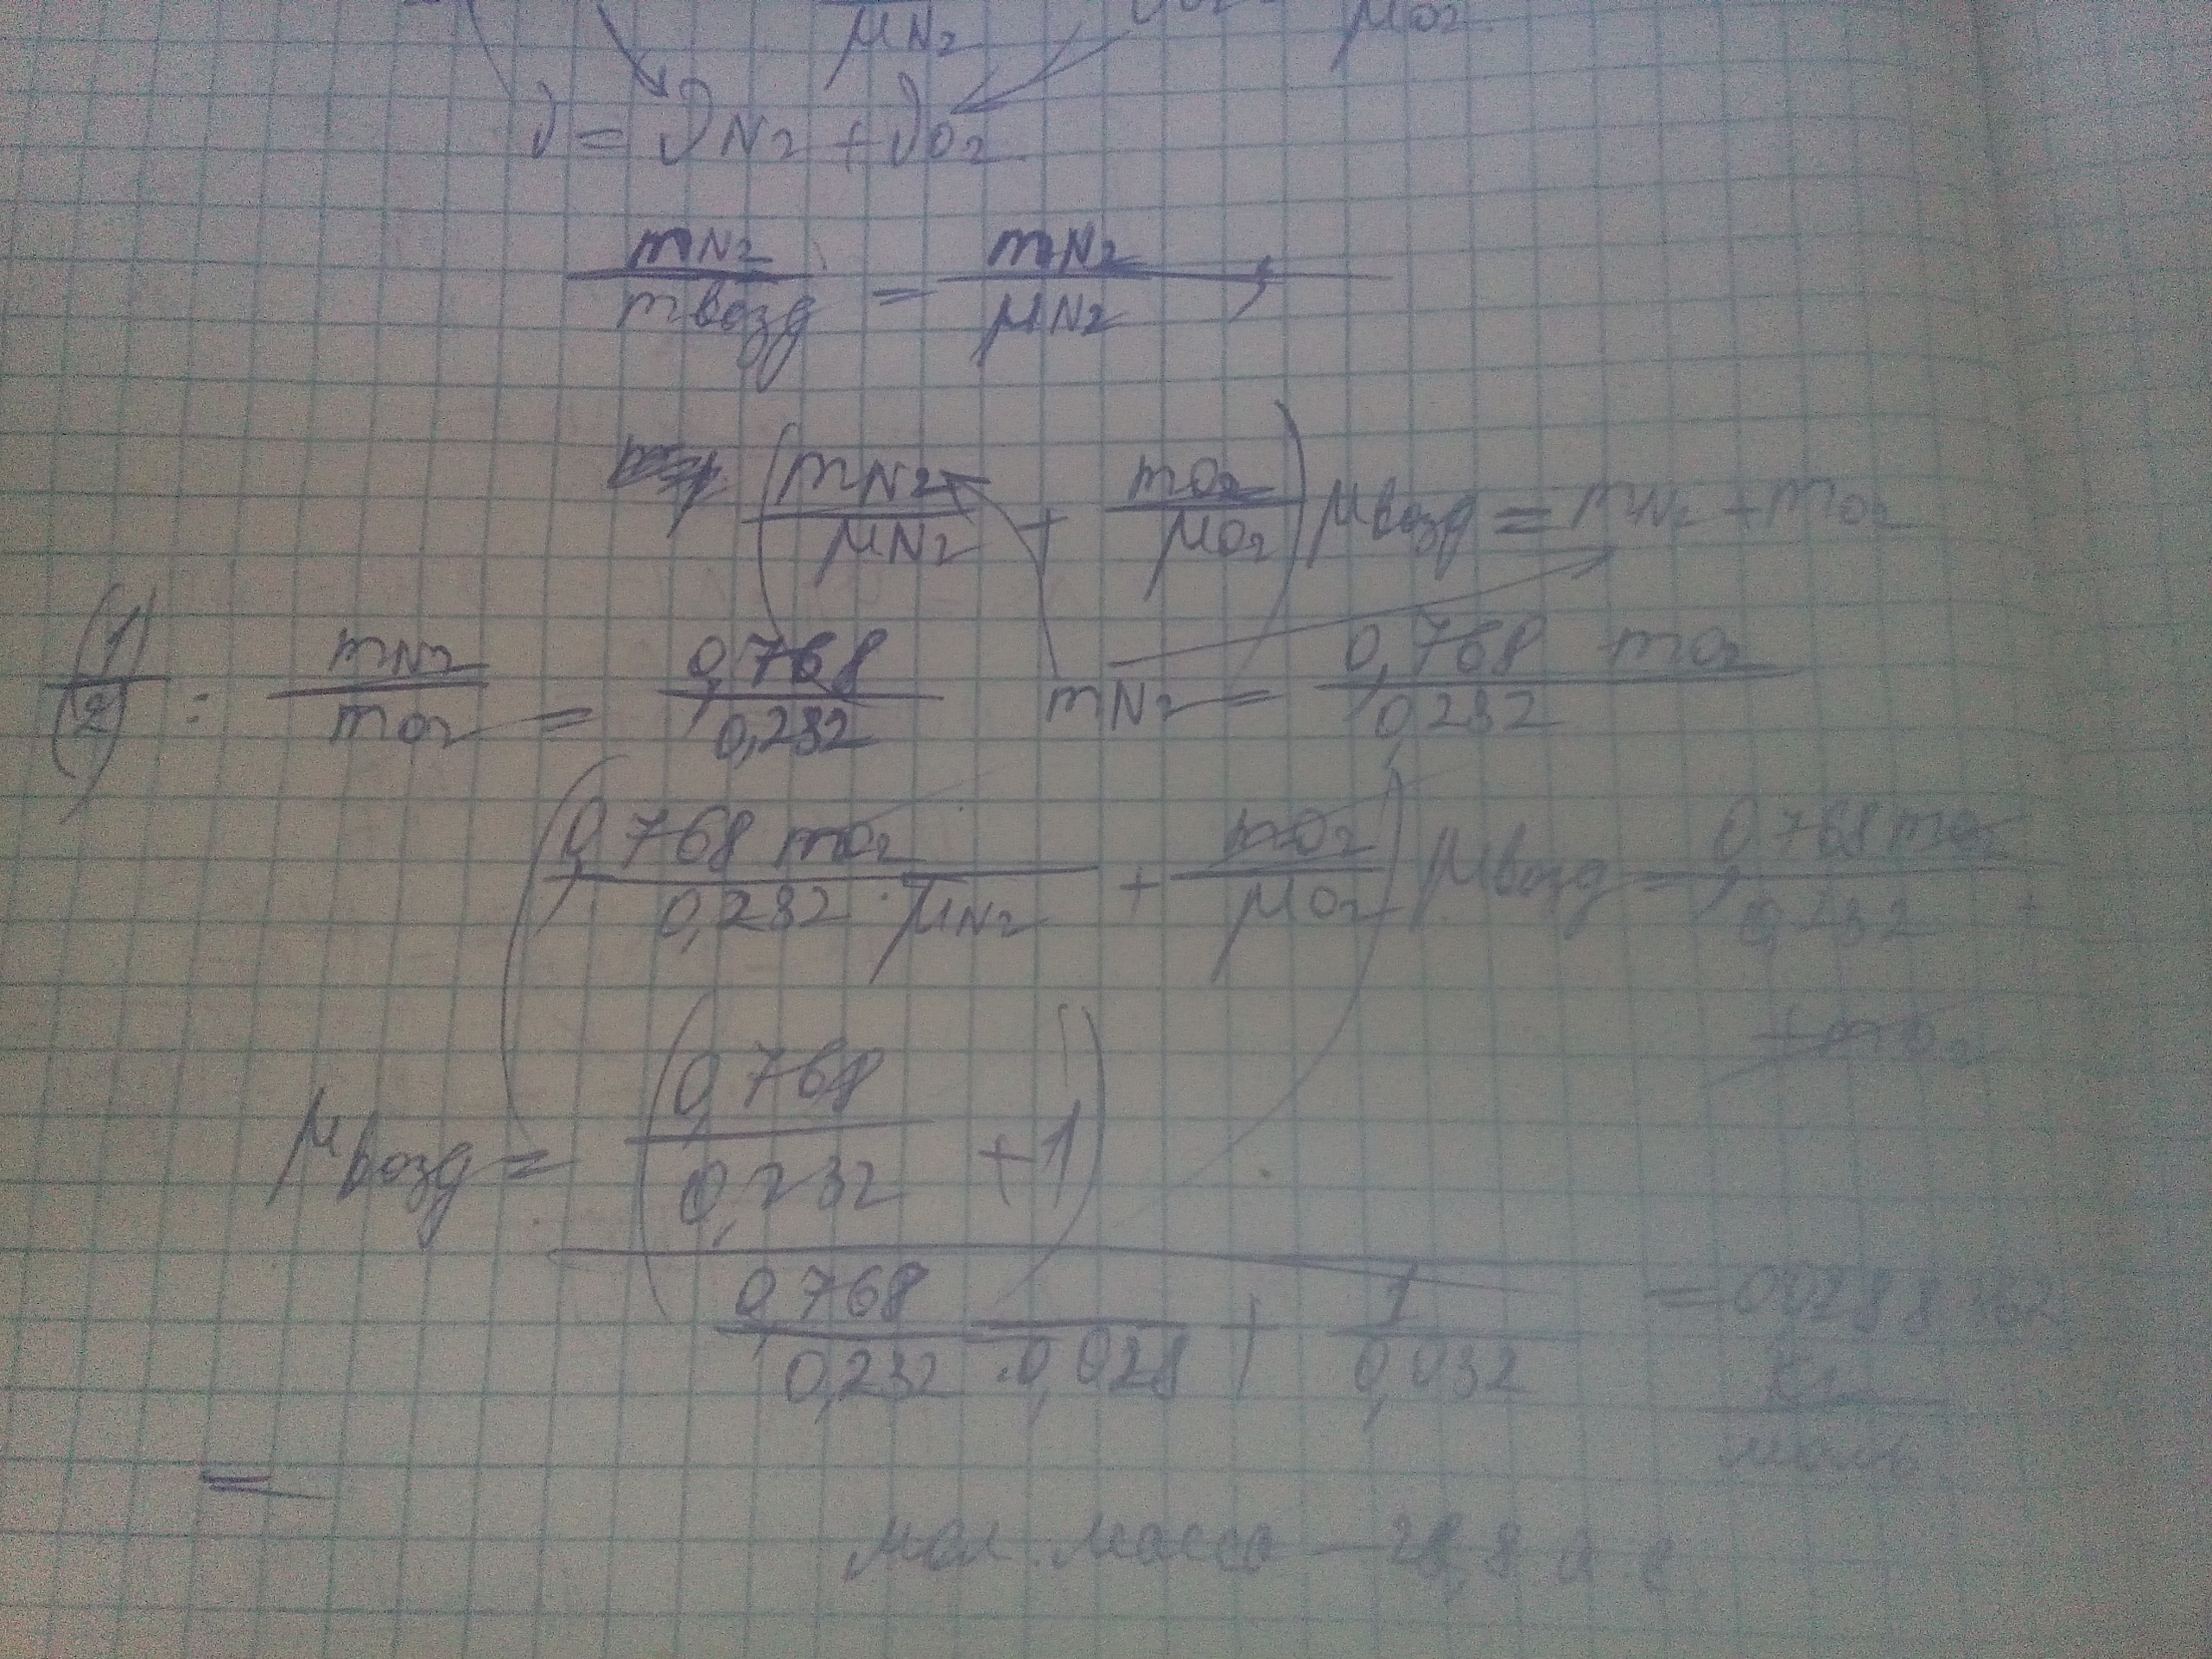 μN₂ μO₂
ν = νN₂ + νO₂
mN₂ / mвозд = mN₂ / μN₂
(mN₂ / μN₂ + mO₂ / μO₂) μвозд = mN₂ + mO₂
(1) / (2) : mN₂ / mO₂ = 0,768 / 0,232 mN₂ = 0,768 mO₂ / 0,232
(0,768 mO₂ / 0,232 · μN₂ + mO₂ / μO₂) μвозд = 0,768 mO₂ / 0,232
+ mO₂
μвозд = (0,768 / 0,232 + 1) / (0,768 / 0,232 · 0,028 + 1 / 0,032) =
кг / моль
=
мол. масса – 28,8 а е